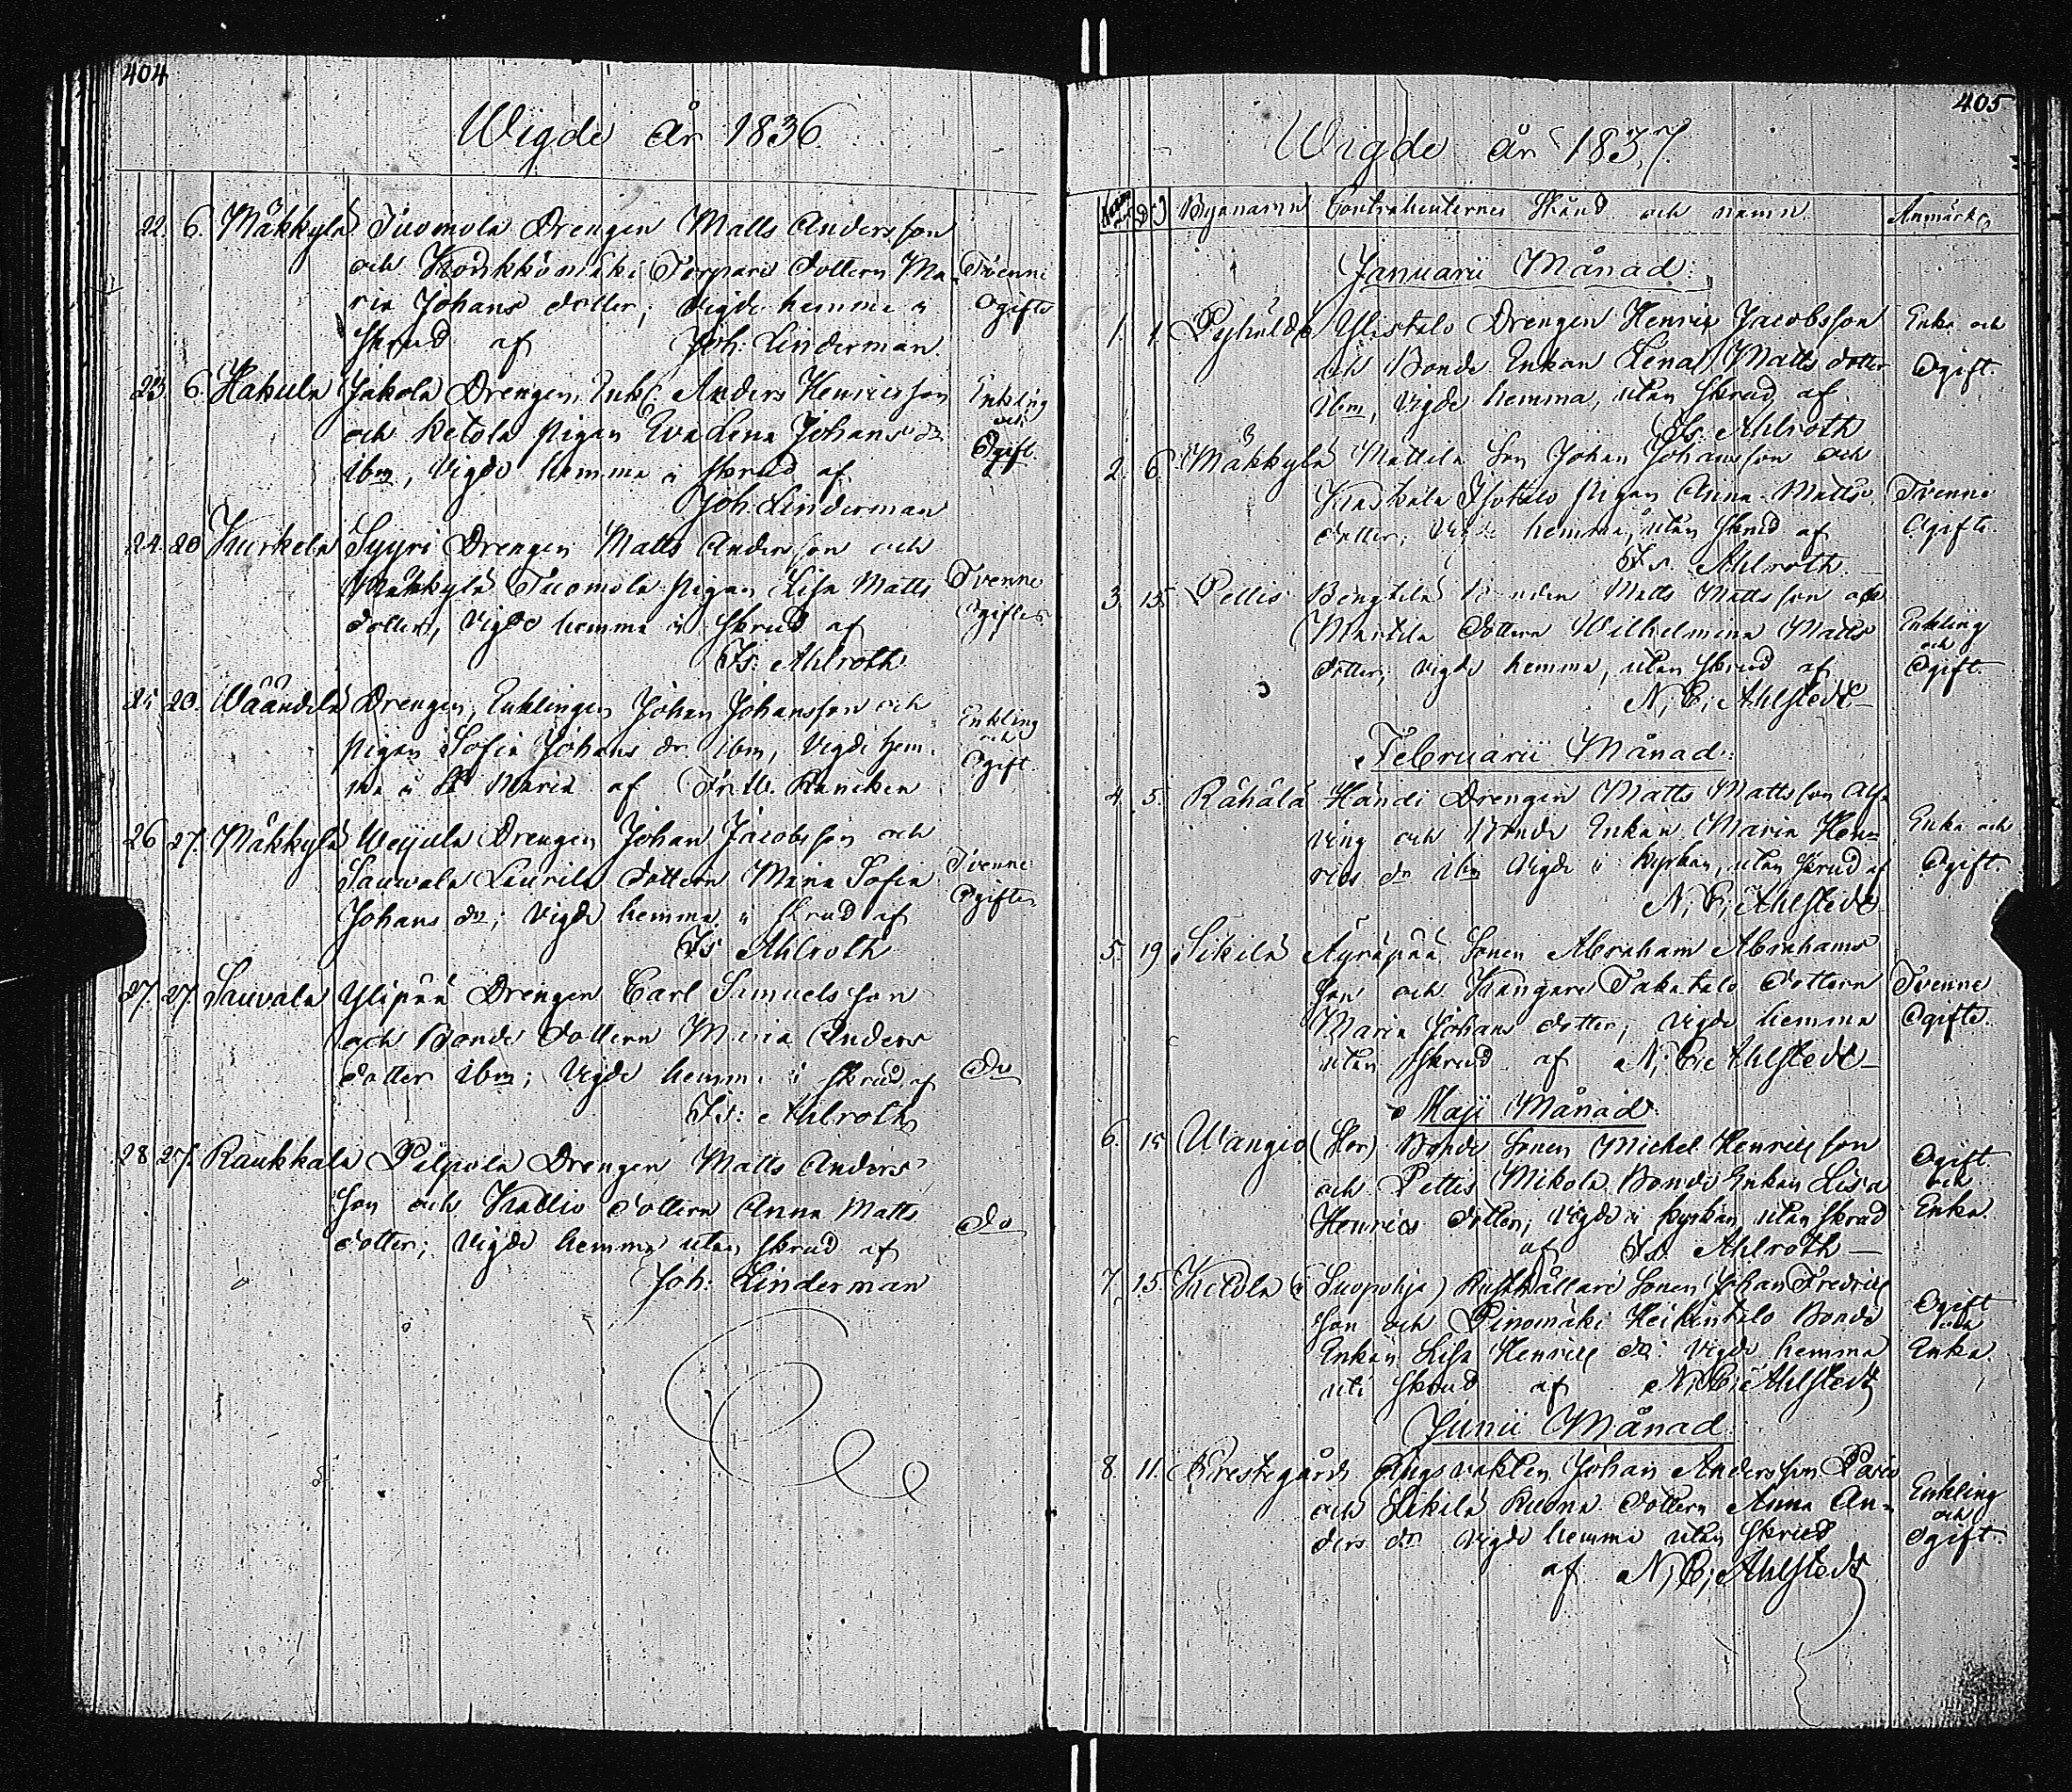 404
Wigde år 1836.
22. 6. Mäkkylä Tuomola Drengen Matts Andersson
och Konkkomäki Torpare dottern Ma- Tvenne
ria Johans dotter; Vigde hemma i Ogifte
skrud af Joh: Linderman
23. 6. Hakula Jakola Drengen, Enkl. Anders Henricsson Enkling
och Ketola pigan Eva Lena Johans dr och
ibm, Vigde hemma i skrud af Ogift.
Joh: Linderman
24. 20 Kurkela Syyri Drengen Matts Andersson och
Mäkkylä Tuomola pigan Lisa Matts Tvenne
dotter, Vigde hemma i skrud af Ogifte
Is: Ahlroth
25 20. Wäändilä Drengen, Enklingen Johan Johansson och Enkling
pigan Sofia Johans dr ibm, Vigde hem- och
ma i St Maria af Ogift.
26 27. Mäkkylä Weijula Drengen Johan Jacobsson och
Sauwala Laurila dottern Maria Sofia Tvenne
Johans dr; Vigde hemma i skrud af Ogifte
Is Ahlroth
27. 27 Sauvala Ylipää Drengen Carl Samuelsson
och Bonde dottern Maria Anders
dotter ibm; Vigde hemma i skrud af Do
Is: Ahlroth
28 27. Raukkala Pilpola Drengen Matts Anders
son och Kallio dottern Anna Matts
dotter; Vigde hemma utan skrud af do
Joh: Linderman
405
Wigde år 1837.
Byanamn Contrahenternes Stånd och namn. Anmärkn
Januarii Månad:
1. 1. Ylistalo Drengen Henric Jacobsson Enka och
och Bonde Enkan Lena Matts dotter Ogift.
ibm, Vigde hemma, utan skrud af
Is: Ahlroth
2. 6. Mäkkylä Mattila Son Johan Johansson och
Isotalo pigan Anna Matts Tvenne
dotter; Vigde hemma, utan skrud af Ogifte.
Is. Ahlroth
3. 15 Pettis Bengtilä Bonden Matts Mattsson och
Martila dottern Wilhelmina Matts Enkling
dotter; vigde hemma, utan skrud af och Ogift.
N, E; Ahlstedt
Februarii Månad:
4. 5. Rähälä Händi Drengen Matts Mattsson Alf-
ving och Bonde Enkan Maria Hen- Enka och
rics dr ibm Vigde i Kyrkan, utan skrud af Ogift.
N, E; Ahlstedt
5. 19. Sikilä Äyräpää Sonen Abraham Abrahams
son och Kangare Takatalo dottern Tvenne
Maria Johans dotter; Vigde hemma Ogifte.
utan skrud af N, E; Ahlstedt
Maji Månad
6. 15 Wangio (Hor) Bonde Sonen Michel Henricsson Ogift
och Pettis Mikola Bonde Enkan Lisa och
Henrics dotter; Vigde i Kyrkan utan skrud Enka.
af Is. Ahlroth
7. 15. Ketola (i Suopohja) Rusthållare Sonen Johan Fredrics
son och Pinomäki Heikintalo Bonde Ogift och
Enkan Lisa Henrics dr Vigde hemma Enka.
uti skrud af N, E; Ahlstedt
Junii Månad
8. 11. Prestegårds Ängsvakten Johan Andersson
och Sikilä dottern Anna An- Enkling och
ders dr Vigde hemma utan skrud Ogift.
af N, E; Ahlstedt